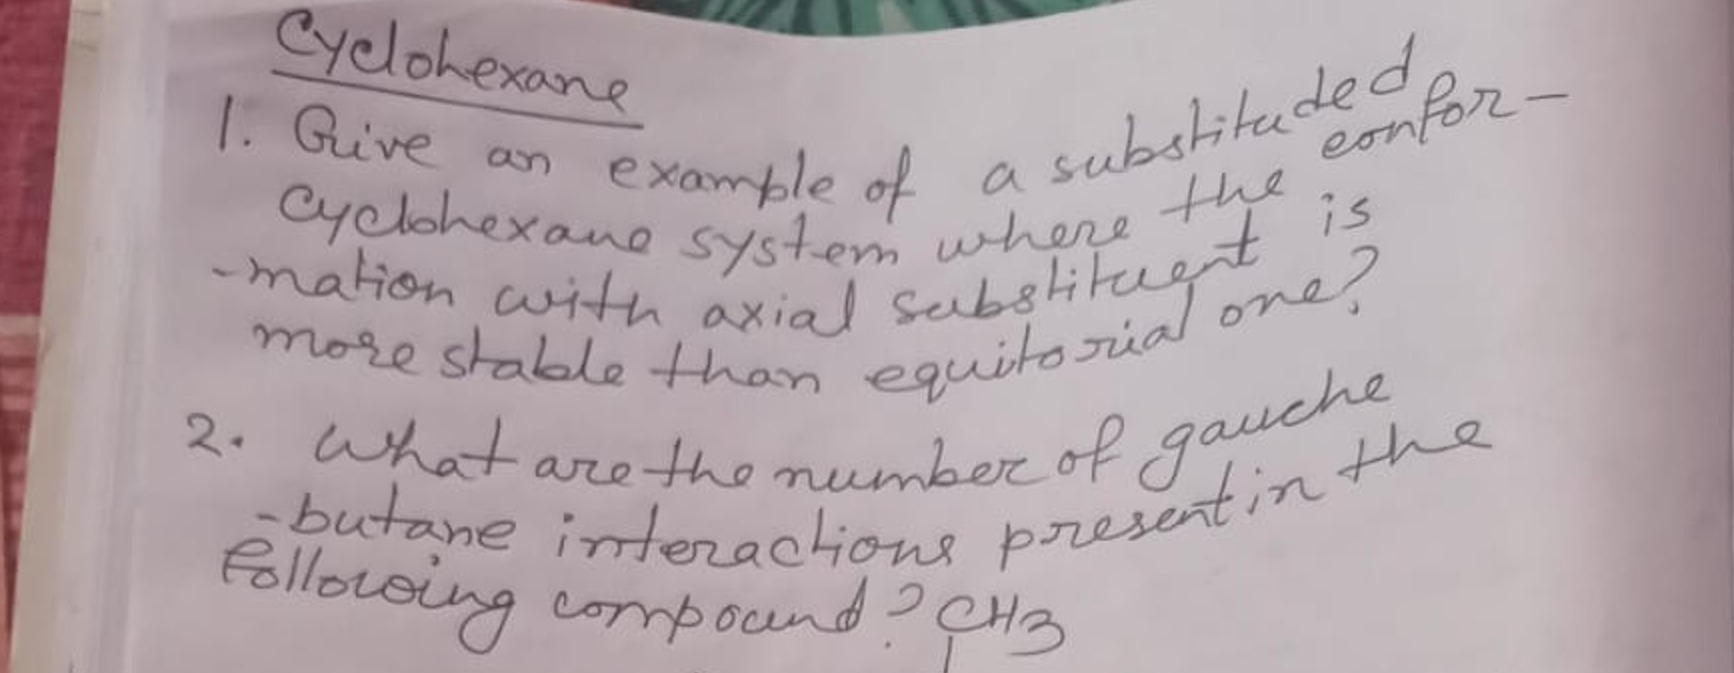 Cyclohexane
1. Give an example of a substituded
cyclohexane system where the confor-
-mation with axial substituent is
more stable than equitorial one?
2. What are the number of gauche
-butane interactions present in the
following compound?
CH3